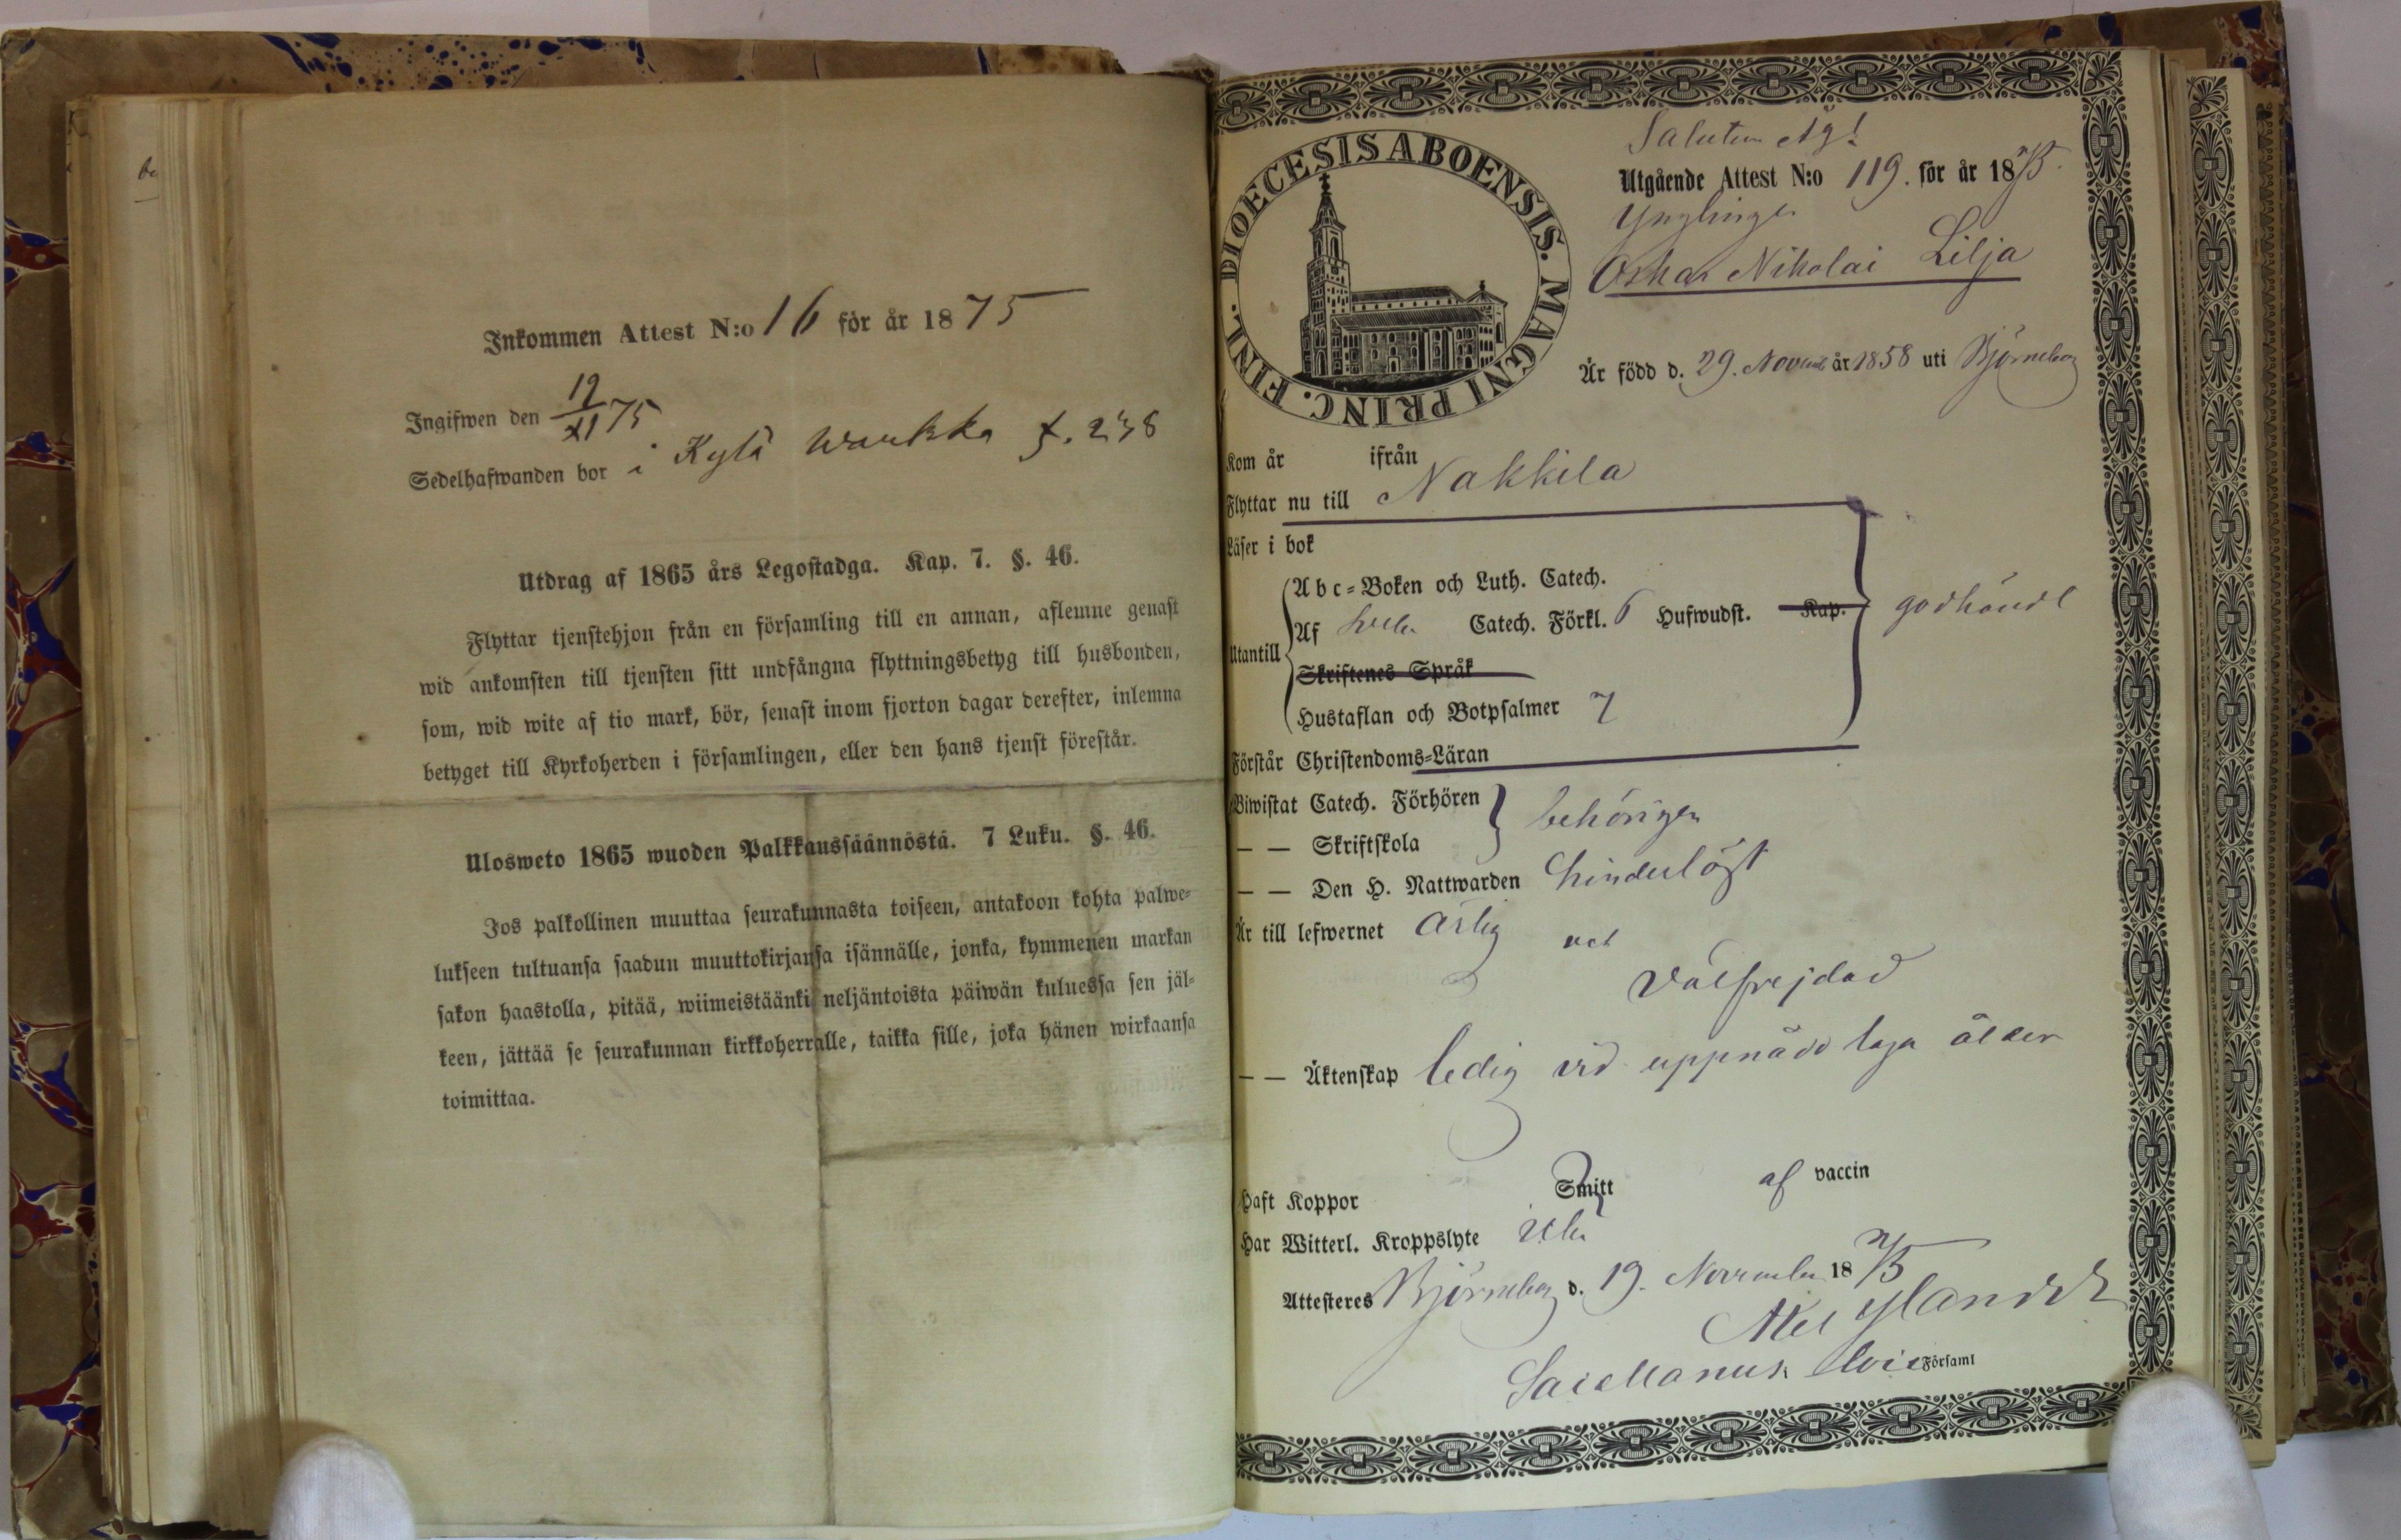 Inkommen Attest N:o 16 för år 1875
Ingifwen den 12/XI 75
Sedelhafwanden bor i Kylä Warkka f. 238
Utdrag af 1865 års Legostadga. Kap. 7. §. 46.
Flyttar tjenstehjon från en församling till en annan, aflemne genast
wid ankomsten till tjensten sitt undfångna flyttningsbetyg till husbonden,
som, wid wite af tio mark, bör, senast inom fjorton dagar derefter, inlemna
betyget till Kyrkoherden i församlingen, eller den hans tjenst förestår.
Ulosweto 1865 wuoden Palkkaussäännöstä. 7 Luku. §. 46.
Jos palkollinen muuttaa seurakunnasta toiseen, antakoon kohta palwe-
lukseen tultuansa saadun muuttokirjansa isännälle, jonka, kymmenen markan
sakon haastolla, pitää, wiimeistäänki neljäntoista päiwän kuluessa sen jäl-
keen, jättää se seurakunnan kirkkoherralle, taikka sille, joka hänen wirkaansa
toimittaa.
DIOECESIS ABOENSIS. MAGNI PRINC. FINL.
Salutem
Utgående Attest N:o 119. för år 1875.
Ynglingen
Oskar Nikolai Lilja
Är född d. 29. Novemb år 1858 uti Björneborg
Kom år ifrån
Flyttar nu till Nakkila
Läser i bok
Abc-Boken och Luth. Catech.
Utantill Af Catech. Förkl. 6 Hufwudst. Kap. godkändt
Skriftenes Språk
Hustaflan och Botpsalmer 7
Förstår Christendoms-Läran
Biwistat Catech. Förhören behörigen
— — Skriftskola
— — Den H. Nattwarden hinderlöst
Är till lefwernet ärlig och
välfrejdad
— — Äktenskap ledig vid uppnådd laga ålder
Haft Koppor Smitt af vaccin
Har Witterl. Kroppslyte
Attesteres Björneborg d. 19. November 1875
Församl